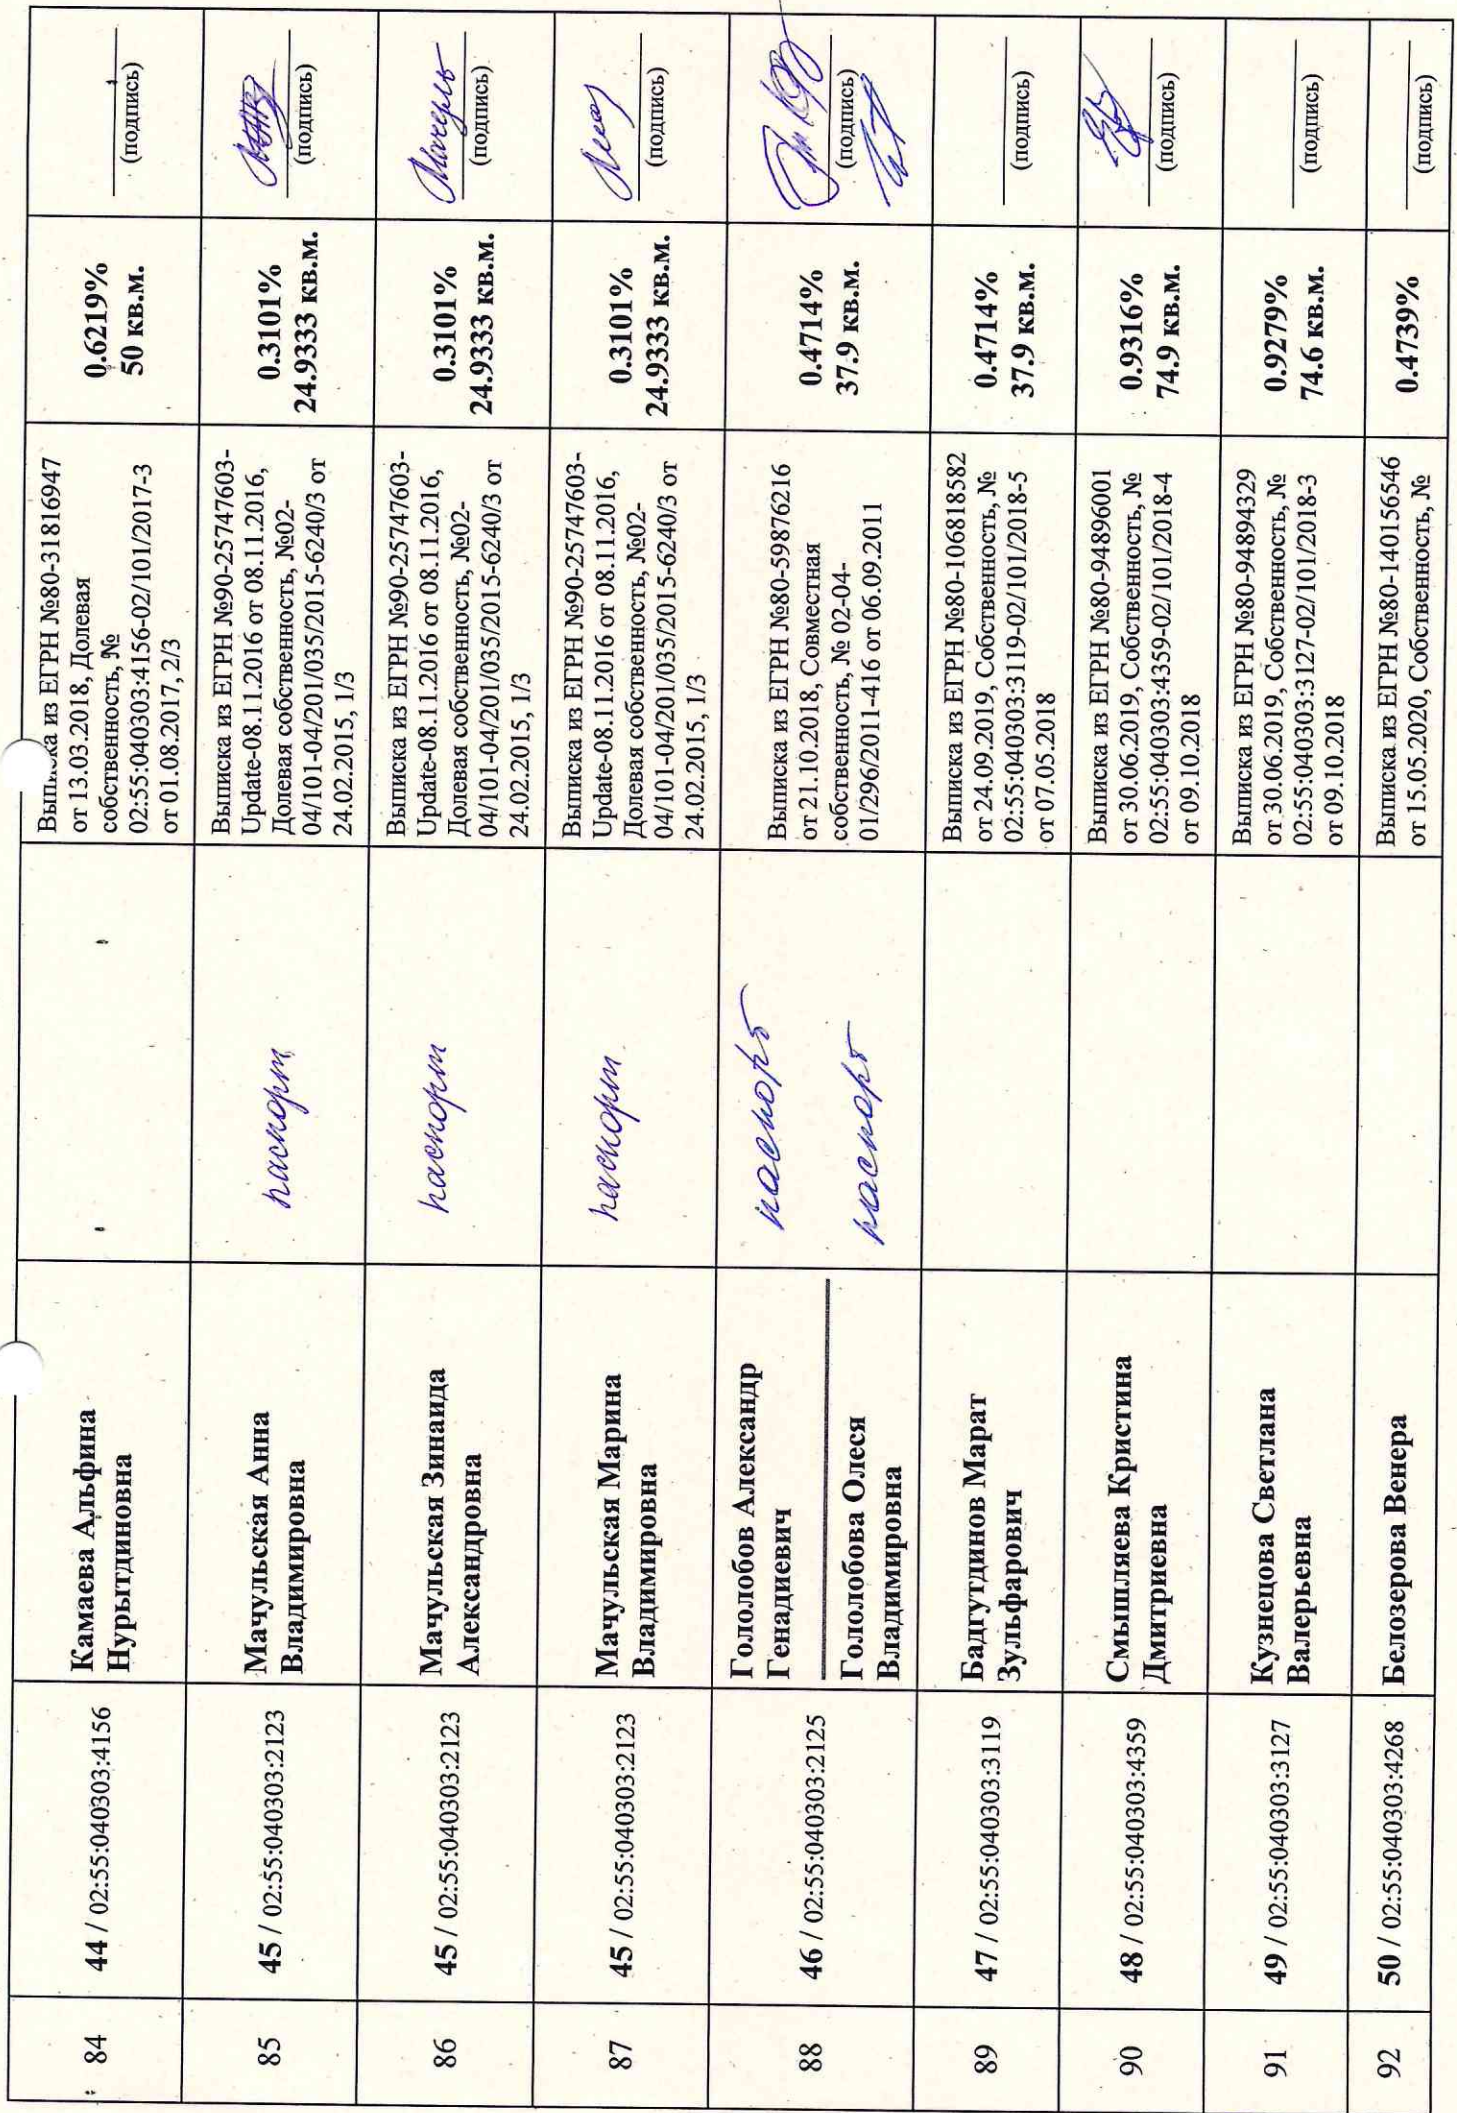 84
44 / 02:55:040303:4156
Камаева Альфина
Нурытдиновна
Выписка из ЕГРН №80-31816947
от 13.03.2018, Долевая
собственность, №
02:55:040303:4156-02/101/2017-3
от 01.08.2017, 2/3
0.6219%
50 кв.м.
(подпись)
85
45 / 02:55:040303:2123
Мачульская Анна
Владимировна
паспорт
Выписка из ЕГРН №90-25747603-
Update-08.11.2016 от 08.11.2016,
Долевая собственность, №02-
04/101-04/201/035/2015-6240/3 от
24.02.2015, 1/3
0.3101%
24.9333 кв.м.
(подпись)
86
45 / 02:55:040303:2123
Мачульская Зинаида
Александровна
паспорт
Выписка из ЕГРН №90-25747603-
Update-08.11.2016 от 08.11.2016,
Долевая собственность, №02-
04/101-04/201/035/2015-6240/3 от
24.02.2015, 1/3
0.3101%
24.9333 кв.м.
(подпись)
87
45 / 02:55:040303:2123
Мачульская Марина
Владимировна
паспорт
Выписка из ЕГРН №90-25747603-
Update-08.11.2016 от 08.11.2016,
Долевая собственность, №02-
04/101-04/201/035/2015-6240/3 от
24.02.2015, 1/3
0.3101%
24.9333 кв.м.
(подпись)
88
46 / 02:55:040303:2125
Гололобов Александр
Генадиевич
Гололобова Олеся
Владимировна
паспорт
паспорт
Выписка из ЕГРН №80-59876216
от 21.10.2018, Совместная
собственность, № 02-04-
01/296/2011-416 от 06.09.2011
0.4714%
37.9 кв.м.
(подпись)
89
47 / 02:55:040303:3119
Бадгутдинов Марат
Зульфарович
Выписка из ЕГРН №80-106818582
от 24.09.2019, Собственность, №
02:55:040303:3119-02/101/2018-5
от 07.05.2018
0.4714%
37.9 кв.м.
(подпись)
90
48 / 02:55:040303:4359
Смышляева Кристина
Дмитриевна
Выписка из ЕГРН №80-94896001
от 30.06.2019, Собственность, №
02:55:040303:4359-02/101/2018-4
от 09.10.2018
0.9316%
74.9 кв.м.
(подпись)
91
49 / 02:55:040303:3127
Кузнецова Светлана
Валерьевна
Выписка из ЕГРН №80-94894329
от 30.06.2019, Собственность, №
02:55:040303:3127-02/101/2018-3
от 09.10.2018
0.9279%
74.6 кв.м.
(подпись)
92
50 / 02:55:040303:4268
Белозерова Венера
Выписка из ЕГРН №80-140156546
от 15.05.2020, Собственность, №
0.4739%
(подпись)